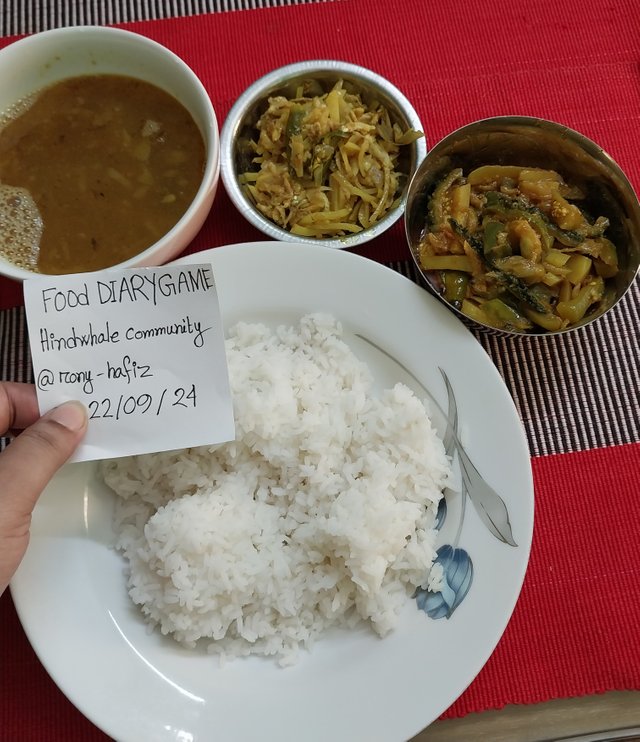 Food DIARYGAME
Hindwhale Community
@rony-hafiz
22/09/24